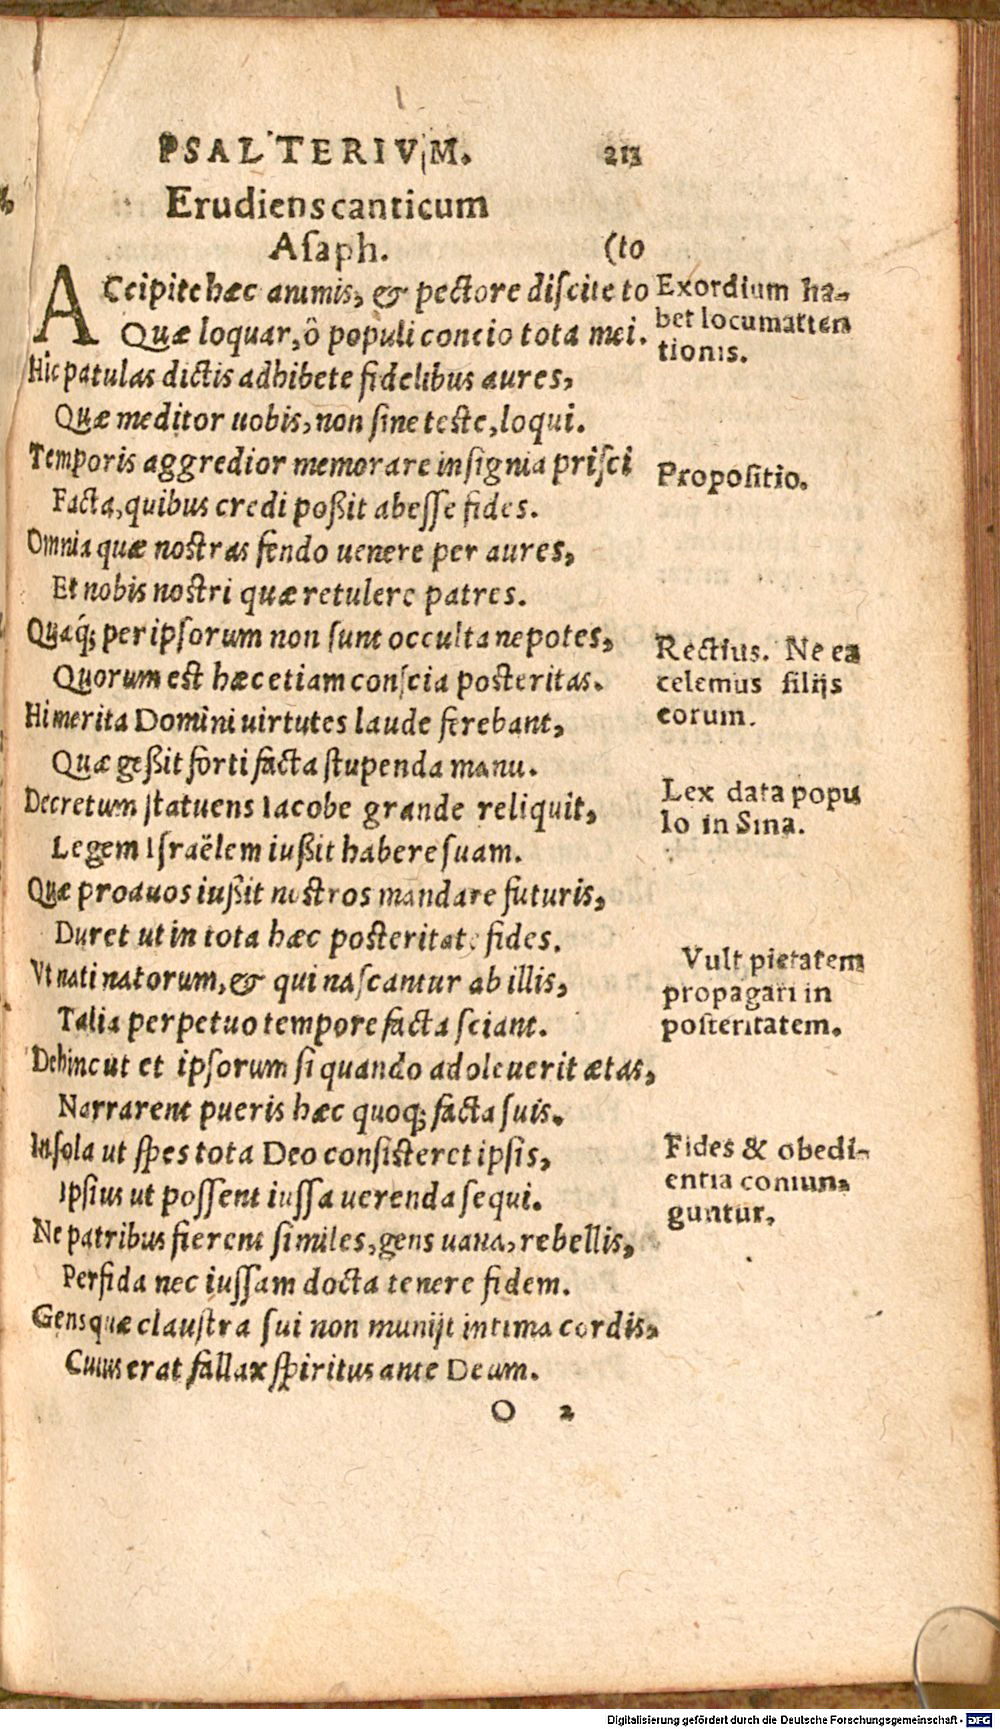 PSALTERIVM. 213
Erudiens canticum
Aſaph. (to
ACcipite hæc animis, & pectore diſcite to
Quæ loquar, ô populi concio tota mei.
Hic patulas dictis adhibete fidelibus aures,
Quæ meditor uobis, non ſine teſte, loqui.
Temporis aggredior memorare inſignia priſci
Facta, quibus credi poßit abeſſe fides.
Omnia quæ noſtras fando uenere per aures,
Et nobis noſtri quæ retulere patres.
Quæq; per ipſorum non ſunt occulta nepotes,
Quorum eſt hæc etiam conſcia poſteritas.
Hi merita Domini uirtutes laude ferebant,
Quæ geßit forti facta ſtupenda manu.
Decretum ſtatuens Iacobe grande reliquit,
Legem Iſraëlem iußit habere ſuam.
Quæ proauos iußit noſtros mandare futuris,
Duret ut in tota hæc poſteritate fides.
Vt nati natorum, & qui naſcantur ab illis,
Talia perpetuo tempore facta ſciant.
Dehinc ut et ipſorum ſi quando adoleuerit ætas,
Narrarent pueris hæc quoq; facta ſuis.
In ſola ut ſpes tota Deo conſiſteret ipſis,
Ipſius ut poſſent iuſſa uerenda ſequi.
Ne patribus fierent ſimiles, gens uana, rebellis,
Perfida nec iuſſam docta tenere fidem.
Gens quæ clauſtra ſui non munijt intima cordis,
Cuius erat fallax ſpiritus ante Deum.
O 2
Exordium ha-
bet locum atten
tionis.
Propoſitio.
Rectius. Ne ea
celemus filijs
eorum.
Lex data popu
lo in Sina.
Vult pietatem
propagari in
poſteritatem.
Fides & obedi-
entia coniun-
guntur,
Digitalisierung gefördert durch die Deutsche Forschungsgemeinschaft - DFG